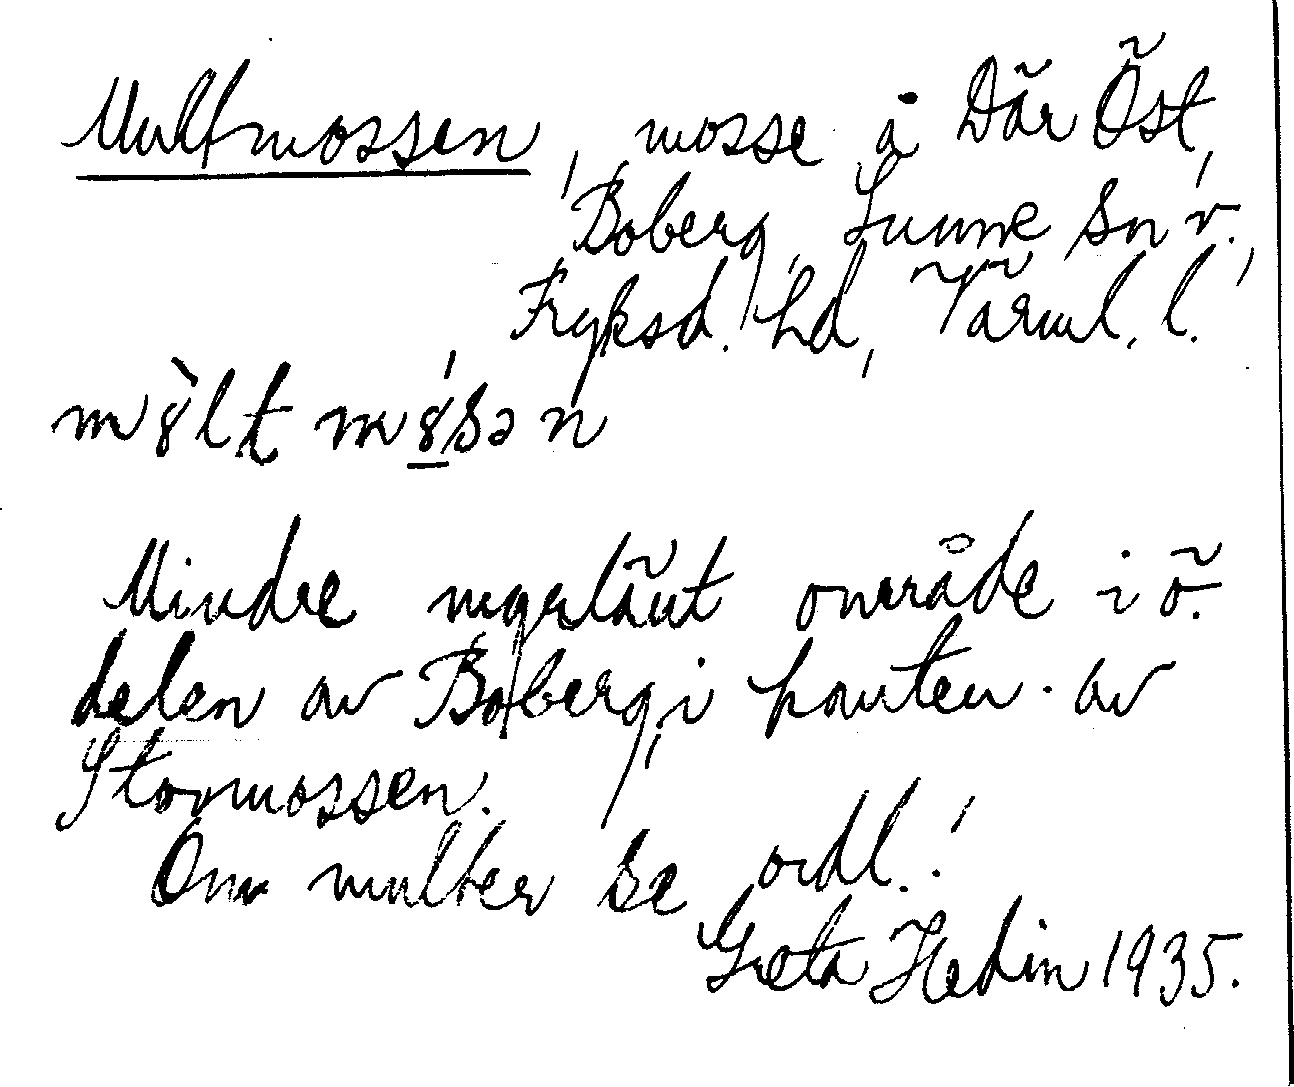 Multmossen, mosse å Där Öst,
Boberg, Sunne sn v.
Fryksd. hd, Värml. l.
mȣ̀lt mȣ́sən
Mindre myrlänt område i ö.
delen av Boberg, i kanten av
Stormossen.
Om multer se ordl.!
Greta Hedin 1935.